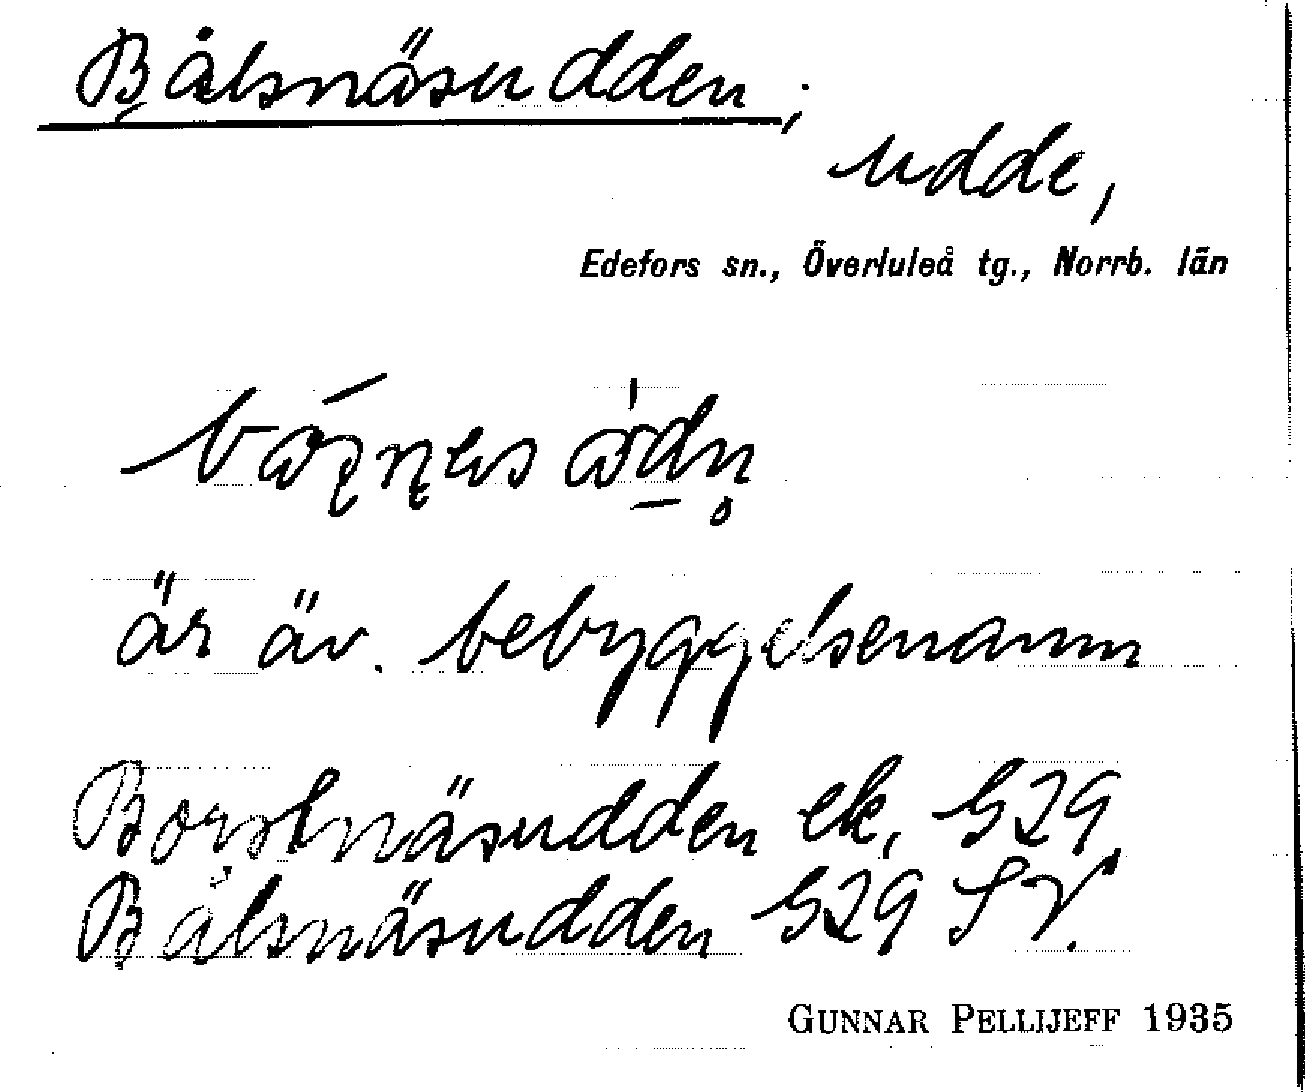 Bålsnäsudden;
udde,
Edefors sn., Överluleå tg., Norrb. län
är äv. bebyggelsenamn
Borstnäsudden ek. S29,
Bålsnäsudden S29 SV.
GUNNAR PELLIJEFF 1935